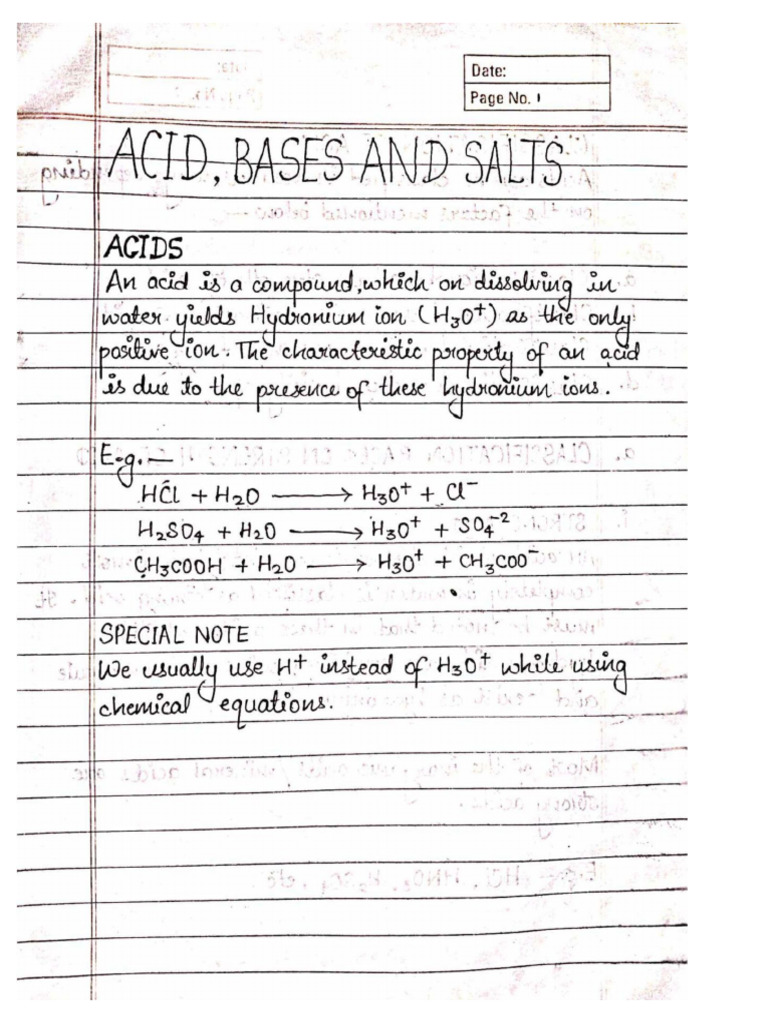 Date:
Page No. 1
ACID, BASES AND SALTS
ACIDS
An acid is a compound, which on dissolving in
water yields Hydronium ion (H₃O⁺) as the only
positive ion. The characteristic property of an acid
is due to the presence of these hydronium ions.
E.g. —
HCl + H₂O ⟶ H₃O⁺ + Cl⁻
H₂SO₄ + H₂O ⟶ H₃O⁺ + SO₄⁻²
CH₃COOH + H₂O ⟶ H₃O⁺ + CH₃COO⁻
SPECIAL NOTE
We usually use H⁺ instead of H₃O⁺ while using
chemical equations.